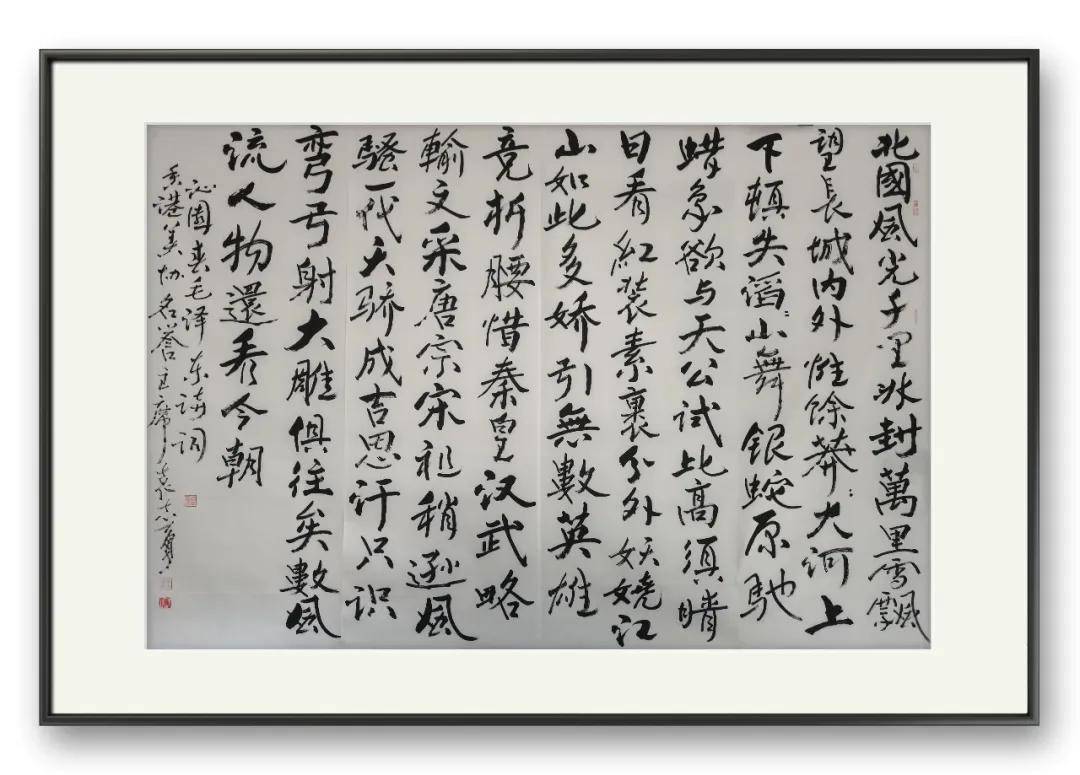 北國風光千里冰封萬里雪飄
望長城内外惟餘莽:大河上
下頓失滔:山舞銀蛇原馳
蜡象欲与天公试比高須晴
日看紅装素裹分外妖娆江
山如此多娇引無數英雄
竞折腰惜秦皇汉武略
輸文采唐宗宋祖稍逊風
騷一代天骄成吉思汗只识
弯弓射大雕俱往矣數風
流人物還看今朝
沁園春毛泽东诗词
香港美协名誉主席